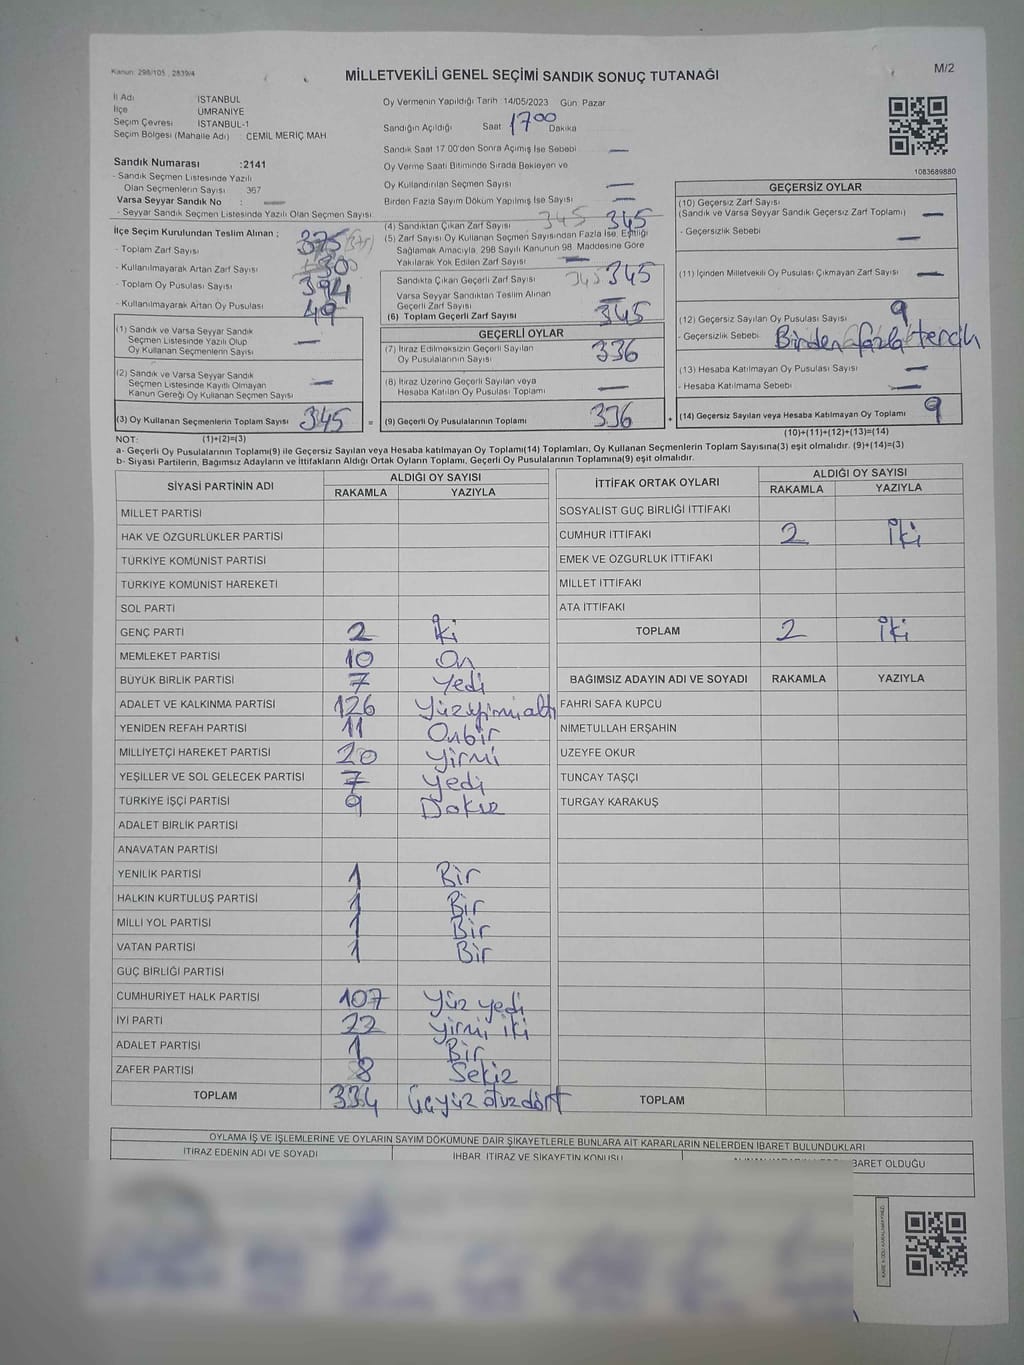 Kanun: 298/105, 2839/4
MİLLETVEKİLİ GENEL SEÇİMİ SANDIK SONUÇ TUTANAĞI
M/2
İl Adı : İSTANBUL
İlçe : ÜMRANİYE
Seçim Çevresi : İSTANBUL-1
Seçim Bölgesi (Mahalle Adı) : CEMİL MERİÇ MAH
Sandık Numarası :2141
- Sandık Seçmen Listesinde Yazılı
Olan Seçmenlerin Sayısı : 367
Varsa Seyyar Sandık No : —
- Seyyar Sandık Seçmen Listesinde Yazılı Olan Seçmen Sayısı
İlçe Seçim Kurulundan Teslim Alınan ;
- Toplam Zarf Sayısı 375
- Kullanılmayarak Artan Zarf Sayısı 30
- Toplam Oy Pusulası Sayısı 394
- Kullanılmayarak Artan Oy Pusulası 49
(1) Sandık ve Varsa Seyyar Sandık
Seçmen Listesinde Yazılı Olup
Oy Kullanan Seçmenlerin Sayısı —
(2) Sandık ve Varsa Seyyar Sandık
Seçmen Listesinde Kayıtlı Olmayan
Kanun Gereği Oy Kullanan Seçmen Sayısı —
(3) Oy Kullanan Seçmenlerin Toplam Sayısı 345
Oy Vermenin Yapıldığı Tarih :14/05/2023 Gün: Pazar
Sandığın Açıldığı Saat 17 00 Dakika
Sandık Saat 17:00'den Sonra Açımış İse Sebebi —
Oy Verme Saati Bitiminde Sırada Bekleyen ve
Oy Kullandırılan Seçmen Sayısı —
Birden Fazla Sayım Döküm Yapılmış İse Sayısı —
(4) Sandıktan Çıkan Zarf Sayısı 345 345
(5) Zarf Sayısı Oy Kullanan Seçmen Sayısından Fazla İse, Eşitliği
Sağlamak Amacıyla, 298 Sayılı Kanunun 98. Maddesine Göre
Yakılarak Yok Edilen Zarf Sayısı —
Sandıkta Çıkan Geçerli Zarf Sayısı 345 345
Varsa Seyyar Sandıktan Teslim Alınan
Geçerli Zarf Sayısı —
(6) Toplam Geçerli Zarf Sayısı 345
GEÇERLİ OYLAR
(7) İtiraz Edilmeksizin Geçerli Sayılan
Oy Pusulalarının Sayısı 336
(8) İtiraz Üzerine Geçerli Sayılan veya
Hesaba Katılan Oy Pusulası Toplamı —
= (9) Geçerli Oy Pusulalarının Toplamı 336
1083689880
GEÇERSİZ OYLAR
(10) Geçersiz Zarf Sayısı
(Sandık ve Varsa Seyyar Sandık Geçersiz Zarf Toplamı) —
- Geçersizlik Sebebi —
(11) İçinden Milletvekili Oy Pusulası Çıkmayan Zarf Sayısı —
(12) Geçersiz Sayılan Oy Pusulası Sayısı 9
- Geçersizlik Sebebi Birden fazla tercih
(13) Hesaba Katılmayan Oy Pusulası Sayısı —
- Hesaba Katılmama Sebebi —
+ (14) Geçersiz Sayılan veya Hesaba Katılmayan Oy Toplamı 9
NOT: (1)+(2)=(3)
(10)+(11)+(12)+(13)=(14)
a- Geçerli Oy Pusulalarının Toplamı(9) ile Geçersiz Sayılan veya Hesaba katılmayan Oy Toplamı(14) Toplamları, Oy Kullanan Seçmenlerin Toplam Sayısına(3) eşit olmalıdır. (9)+(14)=(3)
b- Siyasi Partilerin, Bağımsız Adayların ve İttifakların Aldığı Ortak Oyların Toplamı, Geçerli Oy Pusulalarının Toplamına(9) eşit olmalıdır.
SİYASİ PARTİNİN ADI ALDIĞI OY SAYISI
RAKAMLA YAZIYLA
MİLLET PARTİSİ
HAK VE ÖZGÜRLÜKLER PARTİSİ
TÜRKİYE KOMÜNİST PARTİSİ
TÜRKİYE KOMÜNİST HAREKETİ
SOL PARTİ
GENÇ PARTİ 2 İki
MEMLEKET PARTİSİ 10 On
BÜYÜK BİRLİK PARTİSİ 7 Yedi
ADALET VE KALKINMA PARTİSİ 126 Yüzyirmialtı
YENİDEN REFAH PARTİSİ 11 Onbir
MİLLİYETÇİ HAREKET PARTİSİ 20 Yirmi
YEŞİLLER VE SOL GELECEK PARTİSİ 7 Yedi
TÜRKİYE İŞÇİ PARTİSİ 9 Dokuz
ADALET BİRLİK PARTİSİ
ANAVATAN PARTİSİ
YENİLİK PARTİSİ 1 Bir
HALKIN KURTULUŞ PARTİSİ 1 Bir
MİLLİ YOL PARTİSİ 1 Bir
VATAN PARTİSİ 1 Bir
GÜÇ BİRLİĞİ PARTİSİ
CUMHURİYET HALK PARTİSİ 107 Yüz yedi
İYİ PARTİ 22 Yirmi iki
ADALET PARTİSİ 1 Bir
ZAFER PARTİSİ 8 Sekiz
TOPLAM 334 Üçyüz otuzdört
İTTİFAK ORTAK OYLARI ALDIĞI OY SAYISI
RAKAMLA YAZIYLA
SOSYALİST GÜÇ BİRLİĞİ İTTİFAKI
CUMHUR İTTİFAKI 2 İki
EMEK VE ÖZGÜRLÜK İTTİFAKI
MİLLET İTTİFAKI
ATA İTTİFAKI
TOPLAM 2 İki
BAĞIMSIZ ADAYIN ADI VE SOYADI RAKAMLA YAZIYLA
FAHRİ SAFA KUPCU
NİMETULLAH ERŞAHİN
ÜZEYFE OKUR
TUNCAY TAŞÇI
TURGAY KARAKUŞ
TOPLAM
OYLAMA İŞ VE İŞLEMLERİNE VE OYLARIN SAYIM DÖKÜMÜNE DAİR ŞİKAYETLERLE BUNLARA AİT KARARLARIN NELERDEN İBARET BULUNDUKLARI
İTİRAZ EDENİN ADI VE SOYADI İHBAR, İTİRAZ VE ŞİKAYETİN KONUSU İBARET OLDUĞU